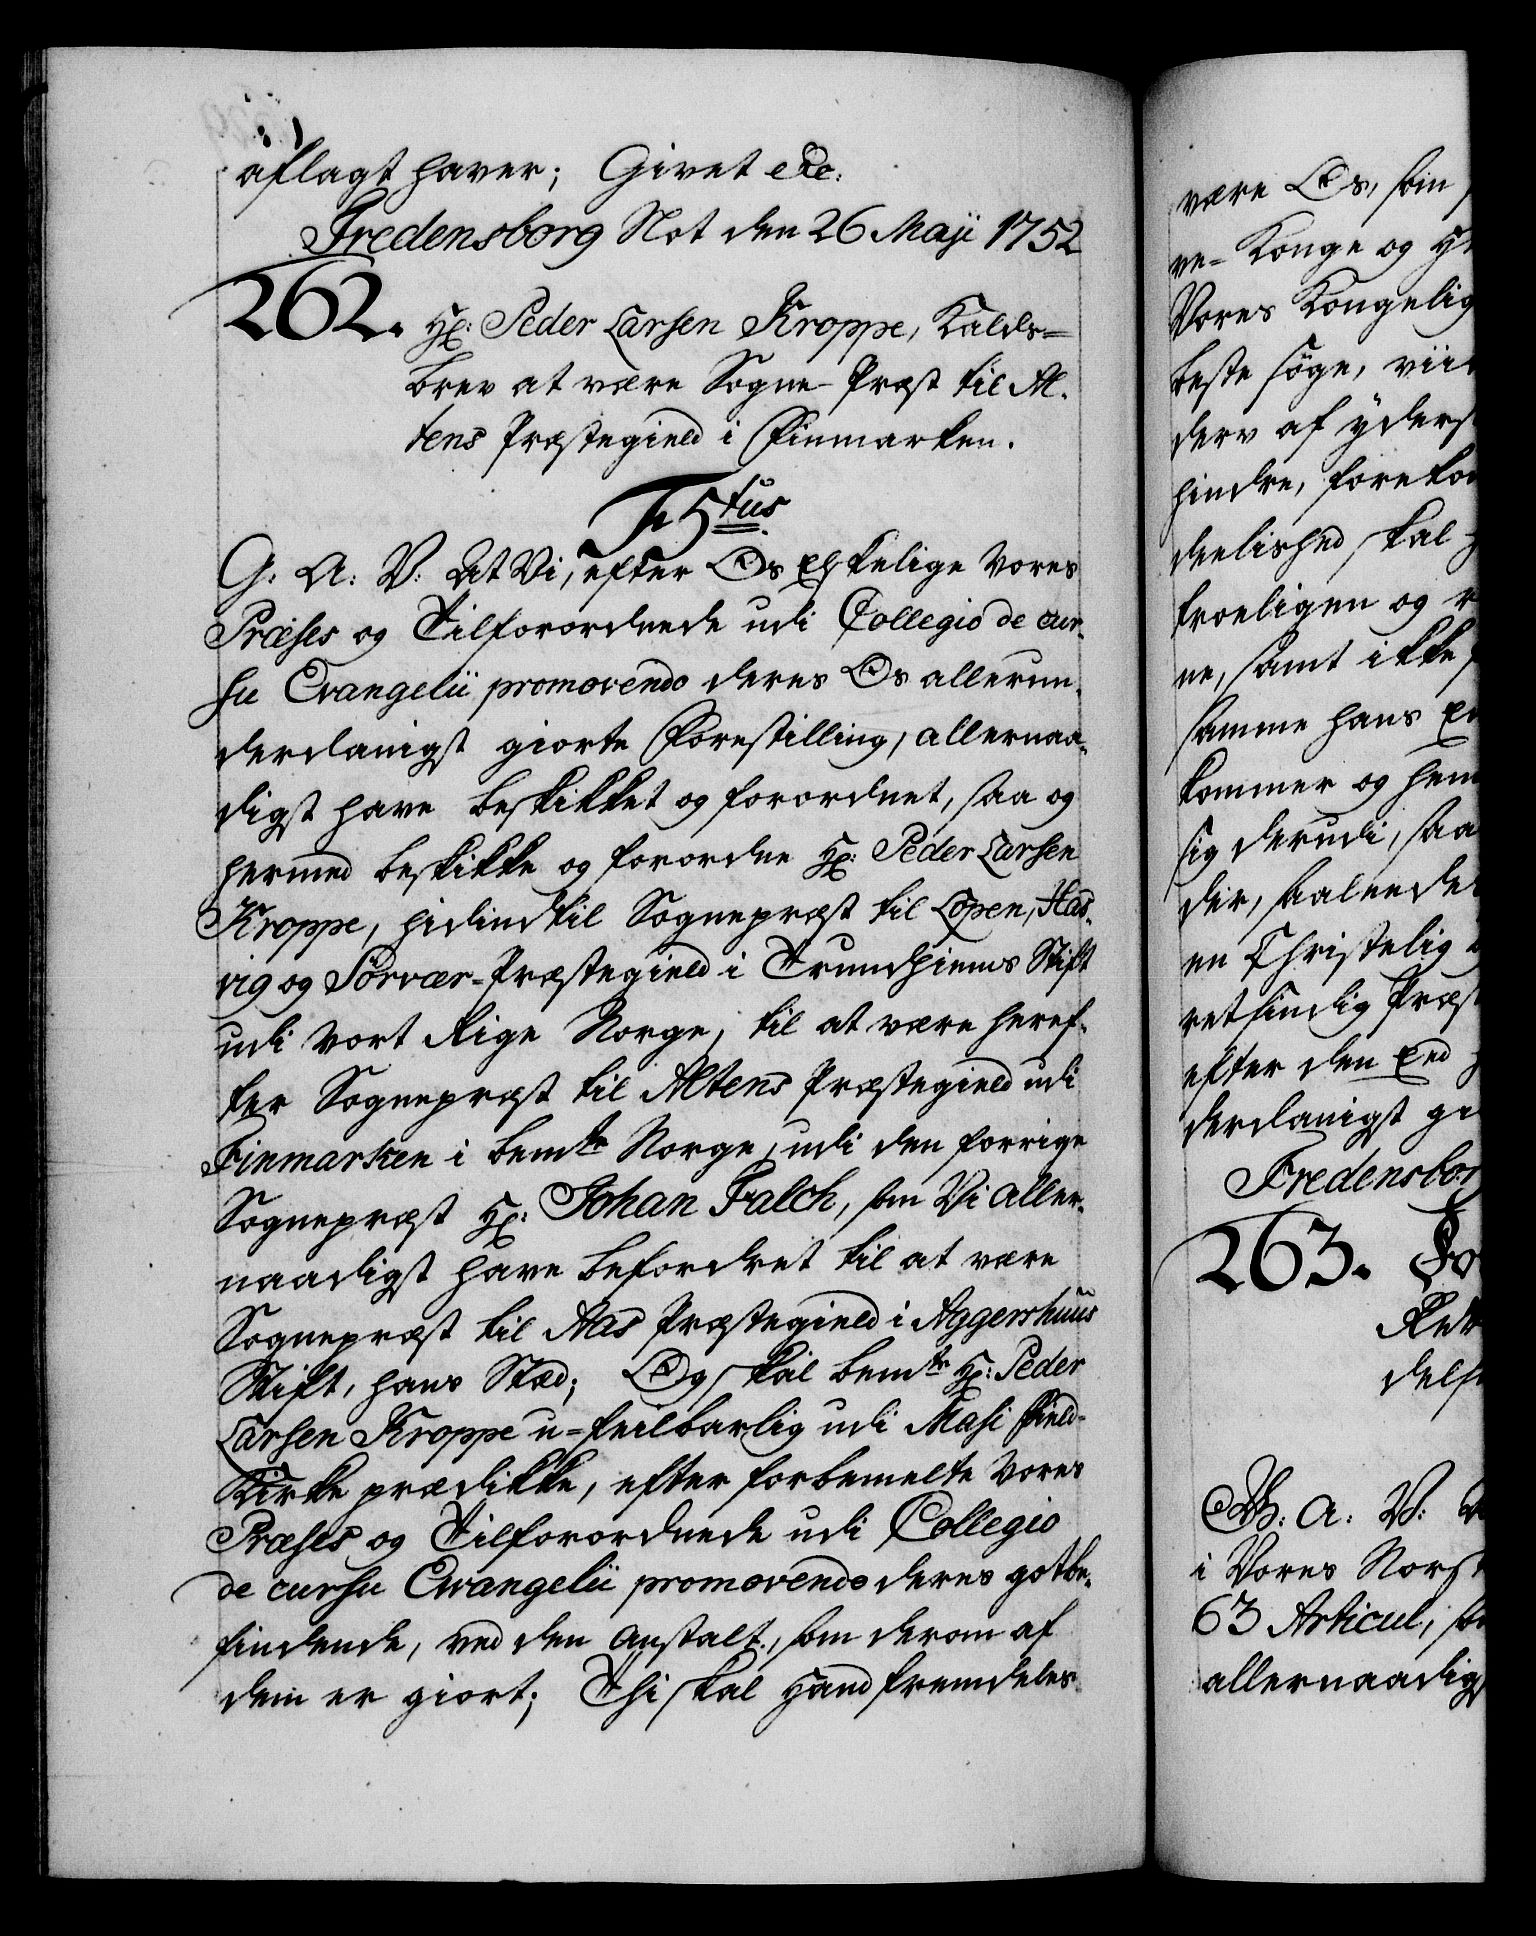 aflagt haver; Givet etc:
Fredensborg Slot den 26 Maji 1752
262. Hr: Peder Larsen Kroppe, Kalds=
brev at være Sogne-Præst til Al-
tens Præstegield i Finmarken.
F 5tus
G: A: V: At Vi, efter Os Elskelige Vores
Præses og Tilforordnede udi Collegio de cur-
su Evangelii promovendo deres Os allerun-
derdanigst giorte Forestilling, allernaa-
digst have beskikket og forordnet, saa og
hermed beskikke og forordne Hr: Peder Larsen
Kroppe, hidindtil Sognepræst til Loppen, Has-
vig og Sörvær-Præstegield i Trundhiems Stift
udi Vort Rige Norge, til at være heref-
ter Sognepræst til Altens Præstegield udi
Finmarken i bemte Norge, udi den forrige
Sognepræst Hr: Johan Falch, som Vi aller-
naadigst have befordret til at være
Sognepræst til Aas Præstegield i Aggershuus
Stift, hans Sted; Og skal bemte Hr: Peder
Larsen Kroppe u=feilbarlig udi Masi Field-
Kirke prædikke, efter forbemelte Vores
Præses og Tilforordnede udi Collegio
de cursu Evangelii promovendo deres gotbe-
findende, ved den Anstalt, som derom af
dem er giort; Thi skal Hand fremdeles
være Os, som
ve-Konge og H
Vores Kongelig
beste söge, vii
derv af yders
hindre, foreko
deelished skal
troeligen og
ne, samt ikke
samme hans E
kommer og hem
sig derudi, saa
der, saaleede
en Christelig
retsindig Præst
efter den Eed
derdanigst gi
Fredensbor
263. Fo
delse
G: A: V:
i Vores Norsk
63 Articul, so
allernaadigst